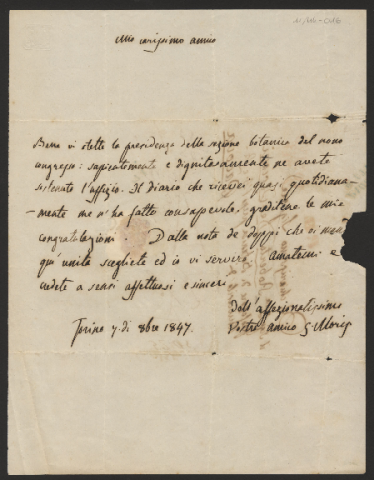 Mio carissimo amico
Bene vi stette la presidenza della sezione botanica del nono
congresso: sapientemente e dignitosamente ne avete
sostenuto l'uffizio. Il diario che ricevei quasi quotidiana-
-mente me n'ha fatto consapevole. graditene le mie
congratulazioni. Dalla nota de' doppi che vi mando
qui unita scegliete ed io vi servirò. amatemi e
credete a sensi affettuosi e sinceri
Dell' affezionatissimo
Torino 7. di 8bre 1847. Vostro amico G Moris